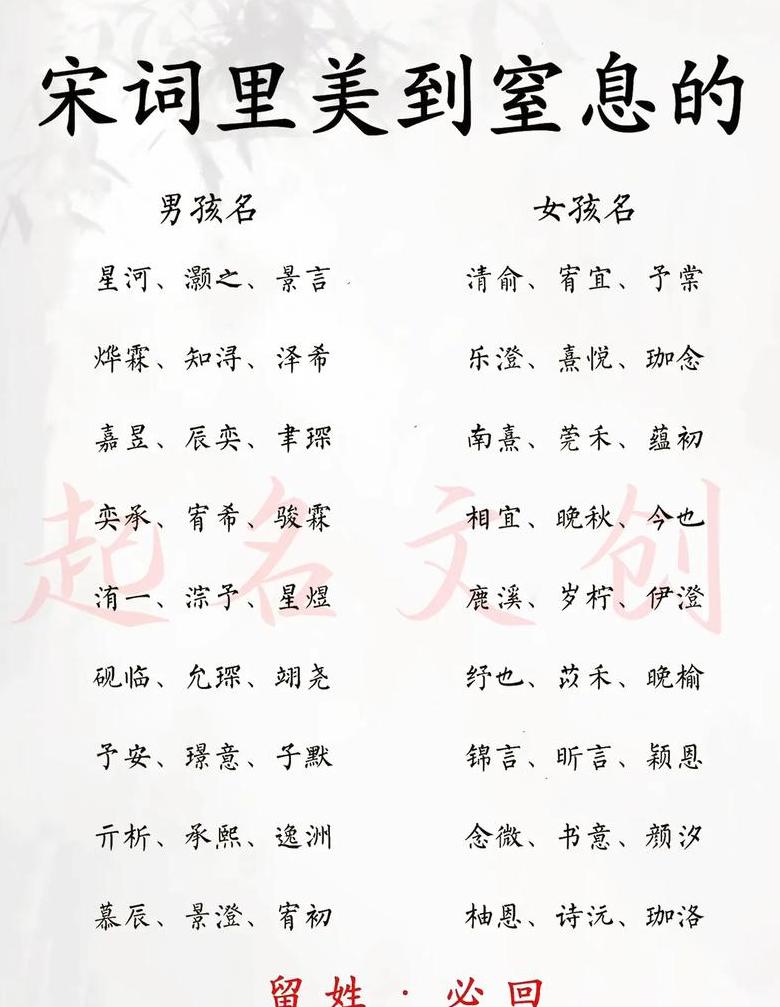 宋词里美到窒息的
男孩名 女孩名
星河、灏之、景言 清俞、宥宜、予棠
烨霖、知浔、泽希 乐澄、熹悦、珈念
嘉昱、辰奕、聿琛 南熹、莞禾、蕴初
奕承、宥希、骏霖 相宜、晚秋、今也
洧一、淙予、星煜 鹿溪、岁柠、伊澄
砚临、允琛、翊尧 纾也、苡禾、晚榆
予安、璟意、子默 锦言、昕言、颖恩
亓析、承熙、逸洲 念微、书意、颜汐
慕辰、景澄、宥初 柚恩、诗沅、珈洛
起名文创
留姓·必回